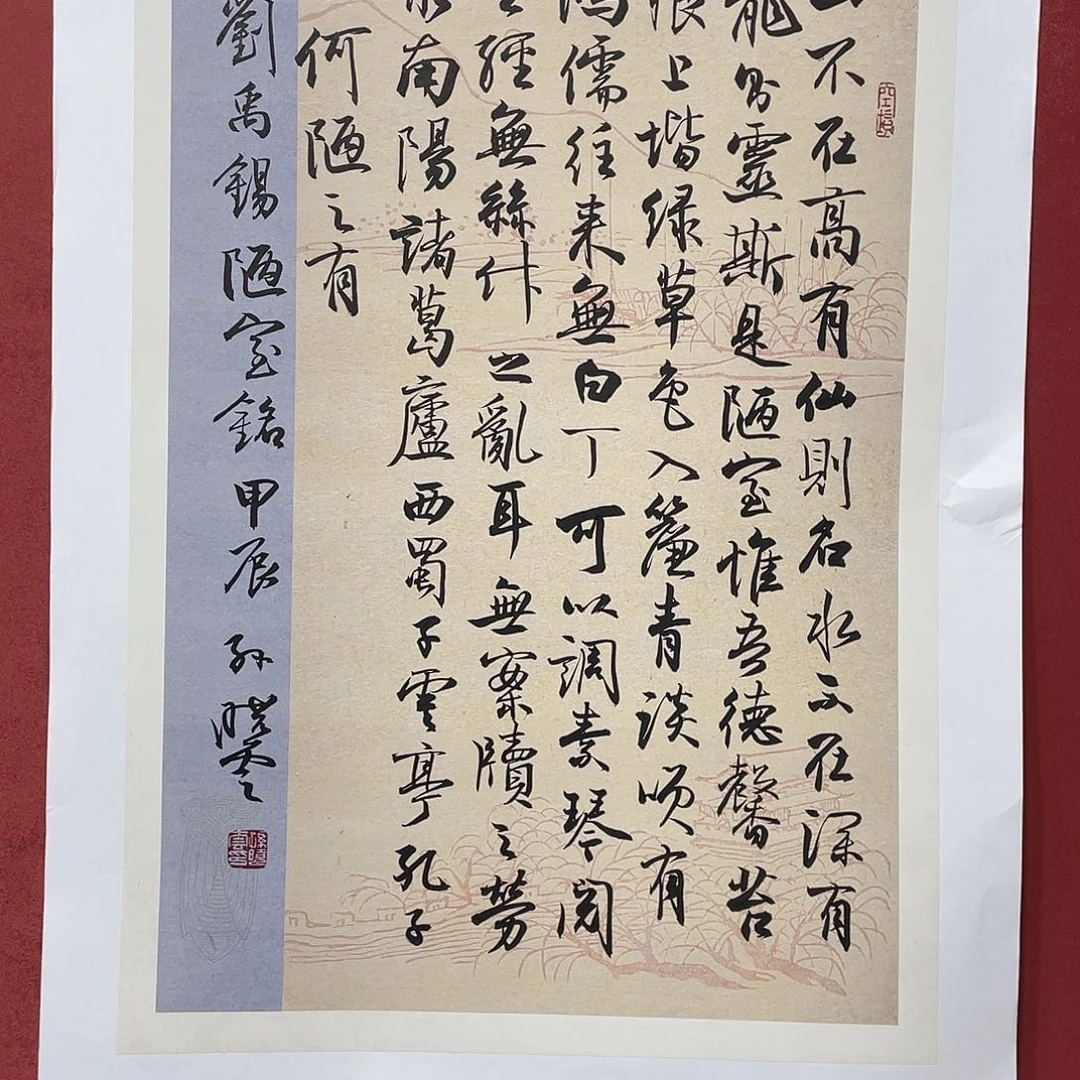 不在高有仙則名水不在深有
龍則靈斯是陋室惟吾德馨苔
痕上堦绿草色入簾青談咲有
鴻儒往来無白丁可以調素琴閱
經無絲竹之亂耳無案牘之勞
南陽諸葛廬西蜀子雲亭孔子
何陋之有
劉禹錫陋室銘甲辰孫曉雲